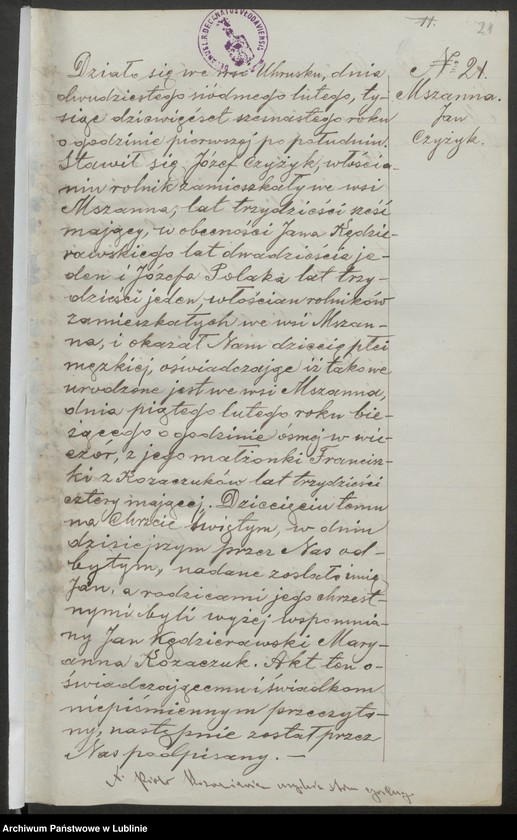 11.
21
№ 21.
Mszanna.
Jan
Czyżyk.
Działo się we wsi Uhrusku, dnia
dwudziestego siódmego lutego, ty-
siąc dziewięćset szesnastego roku
o godzinie pierwszej po południu.
Stawił się Józef Czyżyk, włościa-
nin rolnik zamieszkały we wsi
Mszanna, lat trzydzieści sześć
mający, w obecności Jana Kędzie-
rawskiego lat dwadzieścia je-
den i Józefa Polaka lat trzy-
dzieści jeden, włościan rolników
zamieszkałych we wsi Mszan-
na, i okazał Nam dziecię płci
męzkiej, oświadczając iż takowe
urodzone jest we wsi Mszanna,
dnia piątego lutego roku bie-
żącego o godzinie ósmej w wie-
czor, z jego małżonki Francisz-
ki z Kozaczuków lat trzydzieści
cztery mającej. Dziecięciu temu
na Chrzcie świętym, w dniu
dzisiejszym przez Nas od-
bytym, nadane zostało imię
Jan, a rodzicami jego chrzest-
nymi byli wyżej wspomnia-
ny Jan Kędzierawski Mary-
anna Kozaczuk. Akt ten o-
świadczającemu i świadkom
niepiśmiennym przeczyta-
ny, następnie został przez
Nas podpisany. —
X. Piotr
Archiwum Państwowe w Lublinie